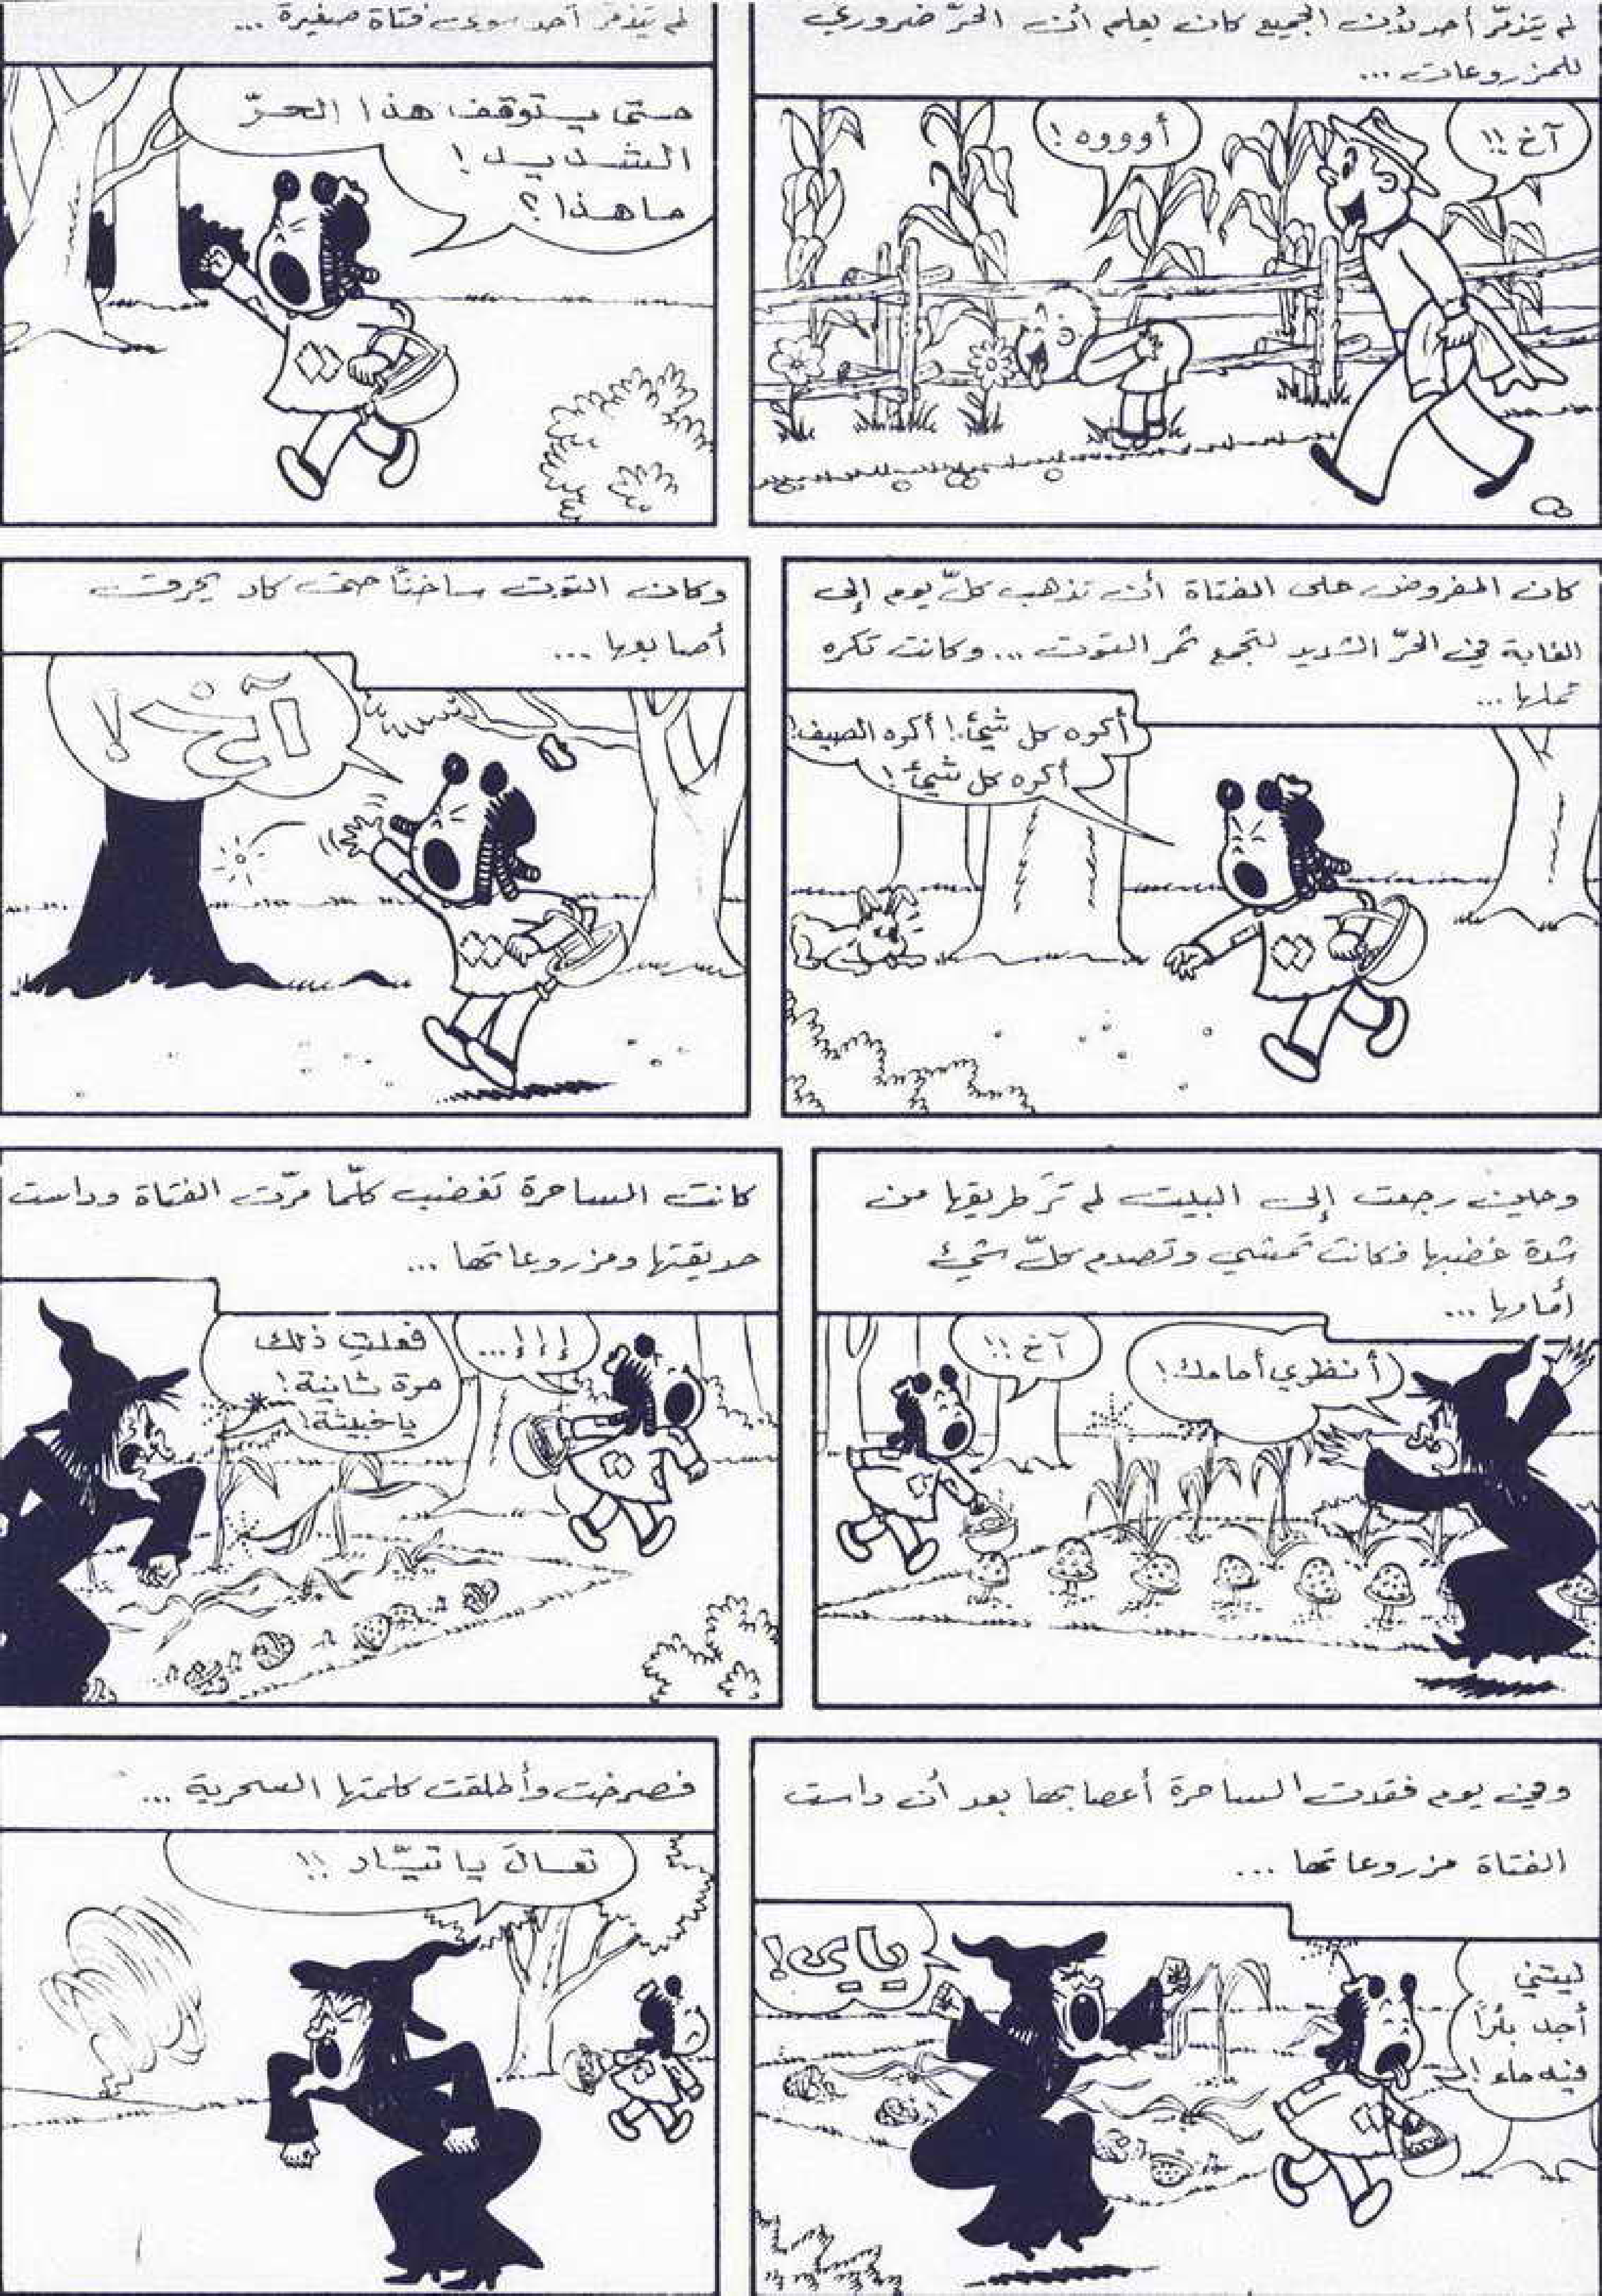 لم يتذمّر أحد لأن الجميع كان يعلم أن الحرّ ضروري
للمزروعات ...
آخ !!
أوووه !
لم يتذمّر أحد سوى فتاة صغيرة ...
متى يتوقف هذا الحرّ
الشديد !
ما هذا ؟
كان المفروض على الفتاة أن تذهب كلّ يوم إلى
الغابة في الحرّ الشديد لتجمع ثمر التوت ... وكانت تكره
عملها ...
أكره كل شيئ ! أكره الصيف !
أكره كل شيئ !
وكان التوت ساخناً حتى كاد يحرق
أصابعها ...
آخ !
وحين رجعت إلى البيت لم تَرَ طريقها من
شدة غضبها فكانت تمشي وتصدم كلّ شيئ
أمامها ...
أنظري أمامك !
آخ !!
كانت الساحرة تغضب كلّما مرّت الفتاة وداست
حديقتها ومزروعاتها ...
إ إ إ ...
فعلتِ ذلك
مرة ثانية !
يا خبيثة !
وفي يوم فقدت الساحرة أعصابها بعد أن داست
الفتاة مزروعاتها ...
ليتني
أجد بئراً
فيه ماء !
ياي !
فصرخت وأطلقت كلمتها السحرية ...
تعالَ يا تيّار !!